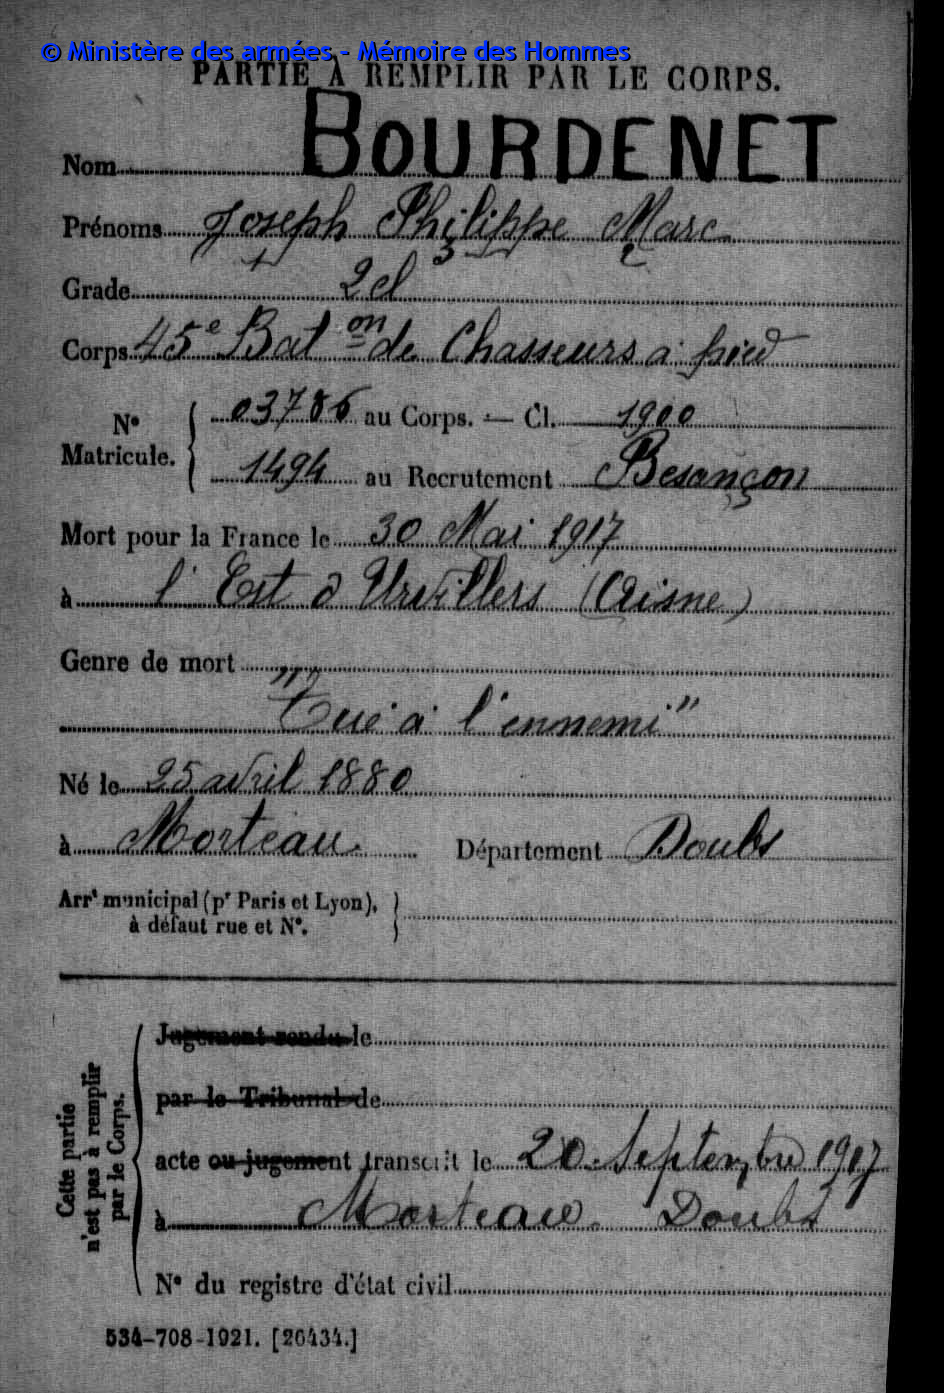 © Ministère des armées - Mémoire des Hommes
PARTIE À REMPLIR PAR LE CORPS.
Nom BOURDENET
Prénoms Joseph Philippe Marc
1 3 2
Grade 2 cl
Corps 45e Baton de Chasseurs à pied
N° Matricule. { 03786 au Corps. — Cl. 1900
1494 au Recrutement Besançon
Mort pour la France le 30 Mai 1917
à l'Est d'Urvillers (Aisne)
Genre de mort
"Tué à l'ennemi"
Né le 25 avril 1880
à Morteau Département Doubs
Arrt municipal (pr Paris et Lyon),
à défaut rue et N°. }
Cette partie
n'est pas à remplir
par le Corps.
Jugement rendu le
par le Tribunal de
acte ou jugement transcrit le 20 Septembre 1917
à Morteau. Doubs
N° du registre d'état civil
534-708-1921. [26434.]